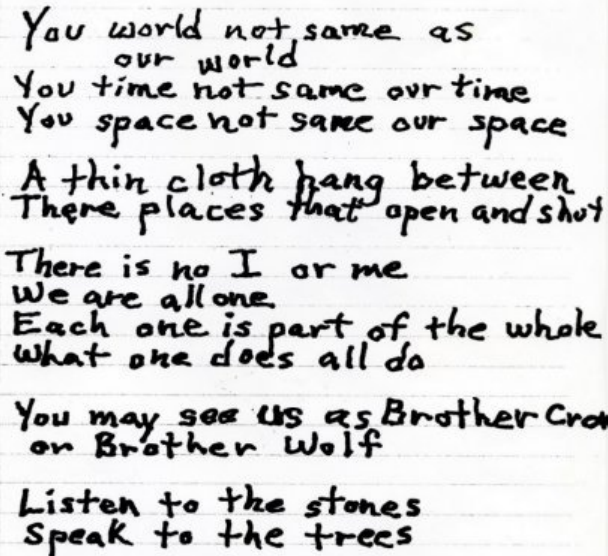 You world not same as
our world
You time not same our time
You space not same our space
A thin cloth hang between
There places that open and shut
There is no I or me
We are all one
Each one is part of the whole
What one does all do
You may see us as Brother Crow
or Brother Wolf
Listen to the stones
Speak to the trees